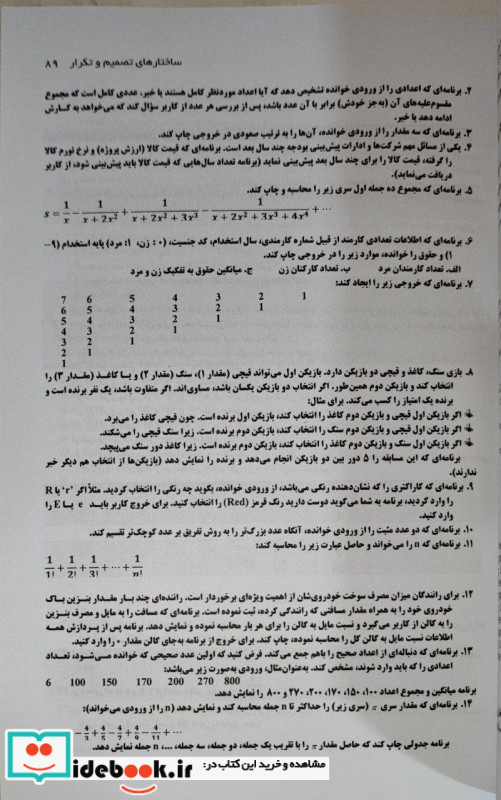 ساختارهای تصمیم و تکرار ۸۹
۲. برنامه‌ای که اعدادی را از ورودی خوانده تشخیص دهد که آیا اعداد موردنظر کامل هستند یا خیر. عددی کامل است که مجموع
مقسوم‌علیه‌های آن (به‌جز خودش) برابر با آن عدد باشد، پس از بررسی هر عدد از کاربر سؤال کند که می‌خواهد به کارش
ادامه دهد یا خیر.
۳. برنامه‌ای که سه مقدار را از ورودی خوانده، آن‌ها را به ترتیب صعودی در خروجی چاپ کند.
۴. یکی از مسائل مهم شرکت‌ها و ادارات پیش‌بینی بودجه چند سال بعد است. برنامه‌ای که قیمت کالا (ارزش پروژه) و نرخ تورم کالا
را گرفته، قیمت کالا را برای چند سال بعد پیش‌بینی نماید (برنامه تعداد سال‌هایی که قیمت کالا باید پیش‌بینی شود، از کاربر
دریافت می‌نماید).
۵. برنامه‌ای که مجموع ده جمله اول سری زیر را محاسبه و چاپ کند.
s = 1/x − 1/(x + 2x²) + 1/(x + 2x² + 3x³) − 1/(x + 2x² + 3x³ + 4x⁴) + ⋯
۶. برنامه‌ای که اطلاعات تعدادی کارمند از قبیل شماره کارمندی، سال استخدام، کد جنسیت، (۰: زن، ۱: مرد) پایه استخدام (۹-
۱) و حقوق را خوانده، موارد زیر را در خروجی چاپ کند.
الف. تعداد کارمندان مرد ب. تعداد کارکنان زن ج. میانگین حقوق به تفکیک زن و مرد
۷. برنامه‌ای که خروجی زیر را ایجاد کند:
7 6 5 4 3 2 1
6 5 4 3 2 1
5 4 3 2 1
4 3 2 1
3 2 1
2 1
1
۸. بازی سنگ، کاغذ و قیچی دو بازیکن دارد. بازیکن اول می‌تواند قیچی (مقدار ۱)، سنگ (مقدار ۲) و یا کاغذ (مقدار ۳) را
انتخاب کند و بازیکن دوم همین‌طور. اگر انتخاب دو بازیکن یکسان باشد، مساوی‌اند. اگر متفاوت باشد، یک نفر برنده است و
برنده یک امتیاز را کسب می‌کند. برای مثال:
اگر بازیکن اول قیچی و بازیکن دوم کاغذ را انتخاب کند، بازیکن اول برنده است. چون قیچی کاغذ را می‌برد.
اگر بازیکن اول قیچی و بازیکن دوم سنگ را انتخاب کند، بازیکن دوم برنده است. زیرا سنگ قیچی را می‌شکند.
اگر بازیکن اول سنگ و بازیکن دوم کاغذ را انتخاب کند، بازیکن دوم برنده است. زیرا کاغذ دور سنگ می‌پیچد.
برنامه‌ای که این مسابقه را ۵ دور بین دو بازیکن انجام می‌دهد و برنده را نمایش دهد (بازیکن‌ها از انتخاب هم دیگر خبر
ندارند).
۹. برنامه‌ای که کاراکتری را که نشان‌دهنده رنگی می‌باشد، از ورودی خوانده، بگوید چه رنگی را انتخاب کردید. مثلاً اگر 'r' یا R
را وارد کردید، برنامه به شما می‌گوید دوست دارید رنگ قرمز (Red) را انتخاب کنید. برای خروج کاربر باید e یا E را
وارد کنید.
۱۰. برنامه‌ای که دو عدد مثبت را از ورودی خوانده، آنگاه عدد بزرگ‌تر را به روش تفریق بر عدد کوچک‌تر تقسیم کند.
۱۱. برنامه‌ای که n را می‌خواند و حاصل عبارت زیر را محاسبه کند:
1/1! + 1/2! + 1/3! + ⋯ + 1/n!
۱۲. برای رانندگان میزان مصرف سوخت خودروی‌شان از اهمیت ویژه‌ای برخوردار است. راننده‌ای چند بار مقدار بنزین باک
خودروی خود را به همراه مقدار مسافتی که رانندگی کرده، ثبت نموده است. برنامه‌ای که مسافت را به مایل و مصرف بنزین
را به گالن از کاربر می‌گیرد و نسبت مایل به گالن را برای هر بار محاسبه نموده و نمایش دهد. برنامه پس از پردازش همه
اطلاعات نسبت مایل به گالن کل را محاسبه نموده، چاپ کند. برای خروج از برنامه به‌جای گالن مقدار ۰ را وارد کنید.
۱۳. برنامه‌ای که دنباله‌ای از اعداد صحیح را باهم جمع می‌کند. فرض کنید که اولین عدد صحیحی که خوانده می‌شود، تعداد
اعدادی را که باید وارد شوند، مشخص کند. به‌عنوان‌مثال، ورودی به‌صورت زیر می‌باشد:
6 100 150 170 200 270 800
برنامه میانگین و مجموع اعداد ۱۰۰، ۱۵۰، ۱۷۰، ۲۰۰، ۲۷۰ و ۸۰۰ را نمایش دهد.
۱۴. برنامه‌ای که مقدار سری π (سری زیر) را حداکثر تا n جمله محاسبه کند و نمایش دهد (n را از ورودی می‌خواند):
− 4/3 + 4/5 − 4/7 + 4/9 − 4/11 + ⋯
برنامه جدولی چاپ کند که حاصل مقدار π را با تقریب یک جمله، دو جمله، سه جمله، ...، n جمله نمایش دهد.
iidebook.ir
مشاهده و خرید این کتاب در: